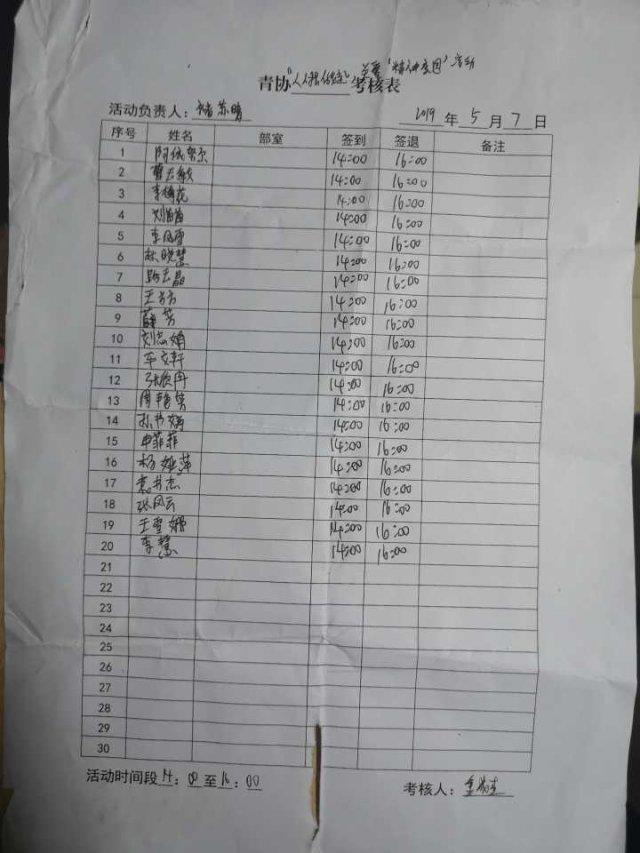 青协 考核表
活动负责人：褚苏晴 2019年5月7日
序号 姓名 部室 签到 签退 备注
1 14:00 16:00
2 14:00 16:00
3 李梅花 14:00 16:00
4 14:00 16:00
5 李凤雪 14:00 16:00
6 林晓慧 14:00 16:00
7 14:00 16:00
8 王芳芳 14:00 16:00
9 薛芳 14:00 16:00
10 刘志娟 14:00 16:00
11 14:00 16:00
12 14:00 16:00
13 周艳芳 14:00 16:00
14 14:00 16:00
15 申菲菲 14:00 16:00
16 杨娅萍 14:00 16:00
17 袁书杰 14:00 16:00
18 张凤云 14:00 16:00
19 王雪娜 14:00 16:00
20 李慧 14:00 16:00
21
22
23
24
25
26
27
28
29
30
活动时间段14：00至16：00 考核人：